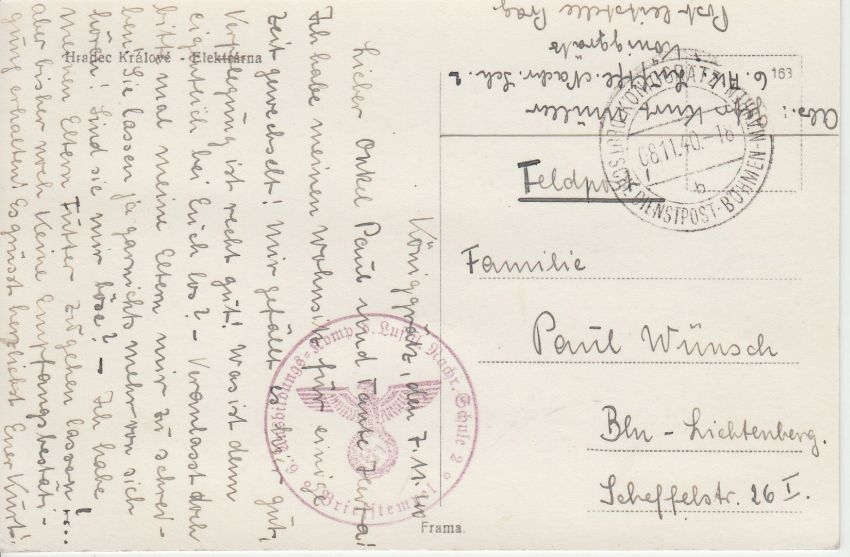 Königgrätz, den 7.11.40
Lieber Onkel Paul und Tante Herta!
Ich habe meinen Wohnsitz für einige
Zeit gewechselt! Mir gefällt es hier gut,
Verpflegung ist recht gut! Was ist denn
eigentlich bei Euch los? - Veranlasst doch
bitte mal meine Eltern mir zu schrei-
ben. Sie lassen ja garnichts mehr von sich
hören! Sind sie mir böse? - Ich habe
meinen Eltern Futter zugehen lassen!...
aber bisher noch keine Empfangsbestäti-
gung erhalten! Es grüsst herzlichst Euer Kurt!
Hradec Králové - Elektrárna
Abs.:
Kurt Müller
6. Luftfl. Nachr. Sch. 2
Königgrätz
Post-Leitstelle Prag
163
KÖNIGGRÄTZ
08.11.40.-18
b
DEUTSCHE DIENSTPOST BÖHMEN-MÄHREN
Feldpost
Familie
Paul Wünsch
Bln - Lichtenberg.
Scheffelstr. 26 I.
6. Ausbildungs-Komp. d. Luftft. Nachr. Schule 2
Briefstempel
Frama.